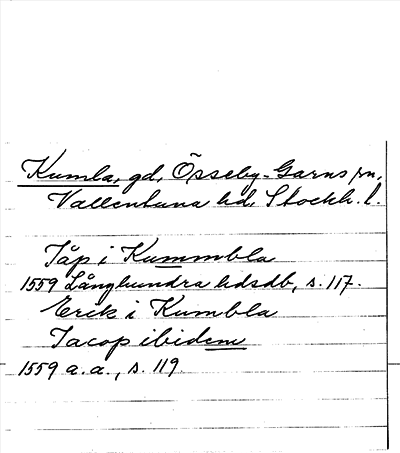 Kumla, gd, Össeby-Garns sn,
Vallentuna hd, Stockh. l.
Jåp i Kummbla
1559 Långhundra hdsdb, s. 117.
Erik i Kumbla
Jacop ibidem
1559 a.a., s. 119